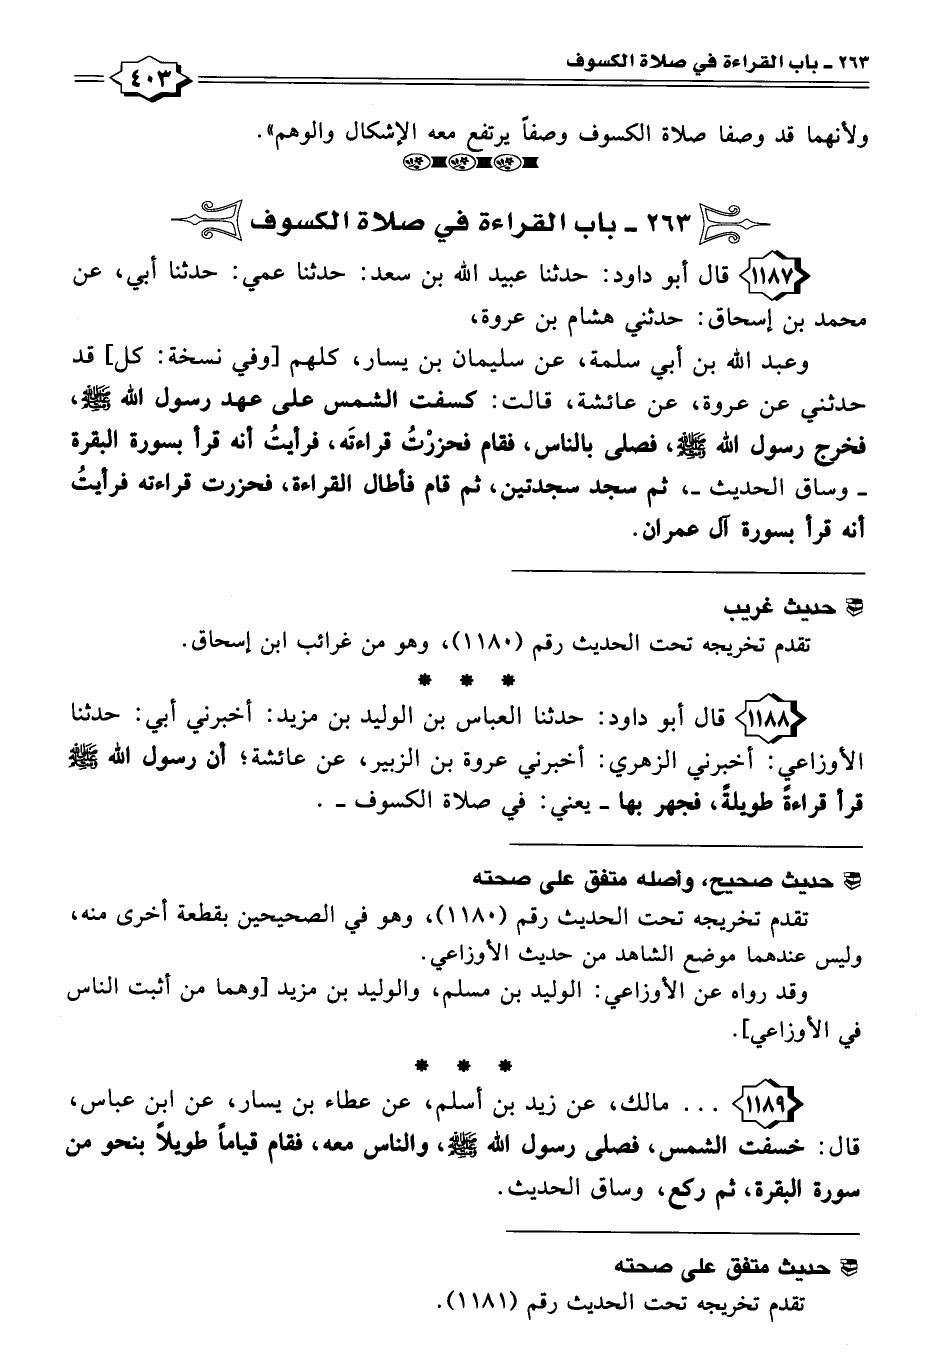 ٢٦٣ - باب القراءة في صلاة الكسوف
٤٠٣
ولأنهما قد وصفا صلاة الكسوف وصفاً يرتفع معه الإشكال والوهم».
٢٦٣ - باب القراءة في صلاة الكسوف
١١٨٧ قال أبو داود: حدثنا عبيد الله بن سعد: حدثنا عمي: حدثنا أبي، عن
محمد بن إسحاق: حدثني هشام بن عروة،
وعبد الله بن أبي سلمة، عن سليمان بن يسار، كلهم [وفي نسخة: كل] قد
حدثني عن عروة، عن عائشة، قالت: كسفت الشمس على عهد رسول الله ﷺ،
فخرج رسول الله ﷺ، فصلى بالناس، فقام فحزرْتُ قراءتَه، فرأيتُ أنه قرأ بسورة البقرة
- وساق الحديث -، ثم سجد سجدتين، ثم قام فأطال القراءة، فحزرت قراءته فرأيتُ
أنه قرأ بسورة آل عمران.
حديث غريب
تقدم تخريجه تحت الحديث رقم (١١٨٠)، وهو من غرائب ابن إسحاق.
* * *
١١٨٨ قال أبو داود: حدثنا العباس بن الوليد بن مزيد: أخبرني أبي: حدثنا
الأوزاعي: أخبرني الزهري: أخبرني عروة بن الزبير، عن عائشة؛ أن رسول الله ﷺ
قرأ قراءةً طويلةً، فجهر بها - يعني: في صلاة الكسوف - .
حديث صحيح، وأصله متفق على صحته
تقدم تخريجه تحت الحديث رقم (١١٨٠)، وهو في الصحيحين بقطعة أخرى منه،
وليس عندهما موضع الشاهد من حديث الأوزاعي.
وقد رواه عن الأوزاعي: الوليد بن مسلم، والوليد بن مزيد [وهما من أثبت الناس
في الأوزاعي].
* * *
١١٨٩ ... مالك، عن زيد بن أسلم، عن عطاء بن يسار، عن ابن عباس،
قال: خسفت الشمس، فصلى رسول الله ﷺ، والناس معه، فقام قياماً طويلاً بنحو من
سورة البقرة، ثم ركع، وساق الحديث.
حديث متفق على صحته
تقدم تخريجه تحت الحديث رقم (١١٨١).